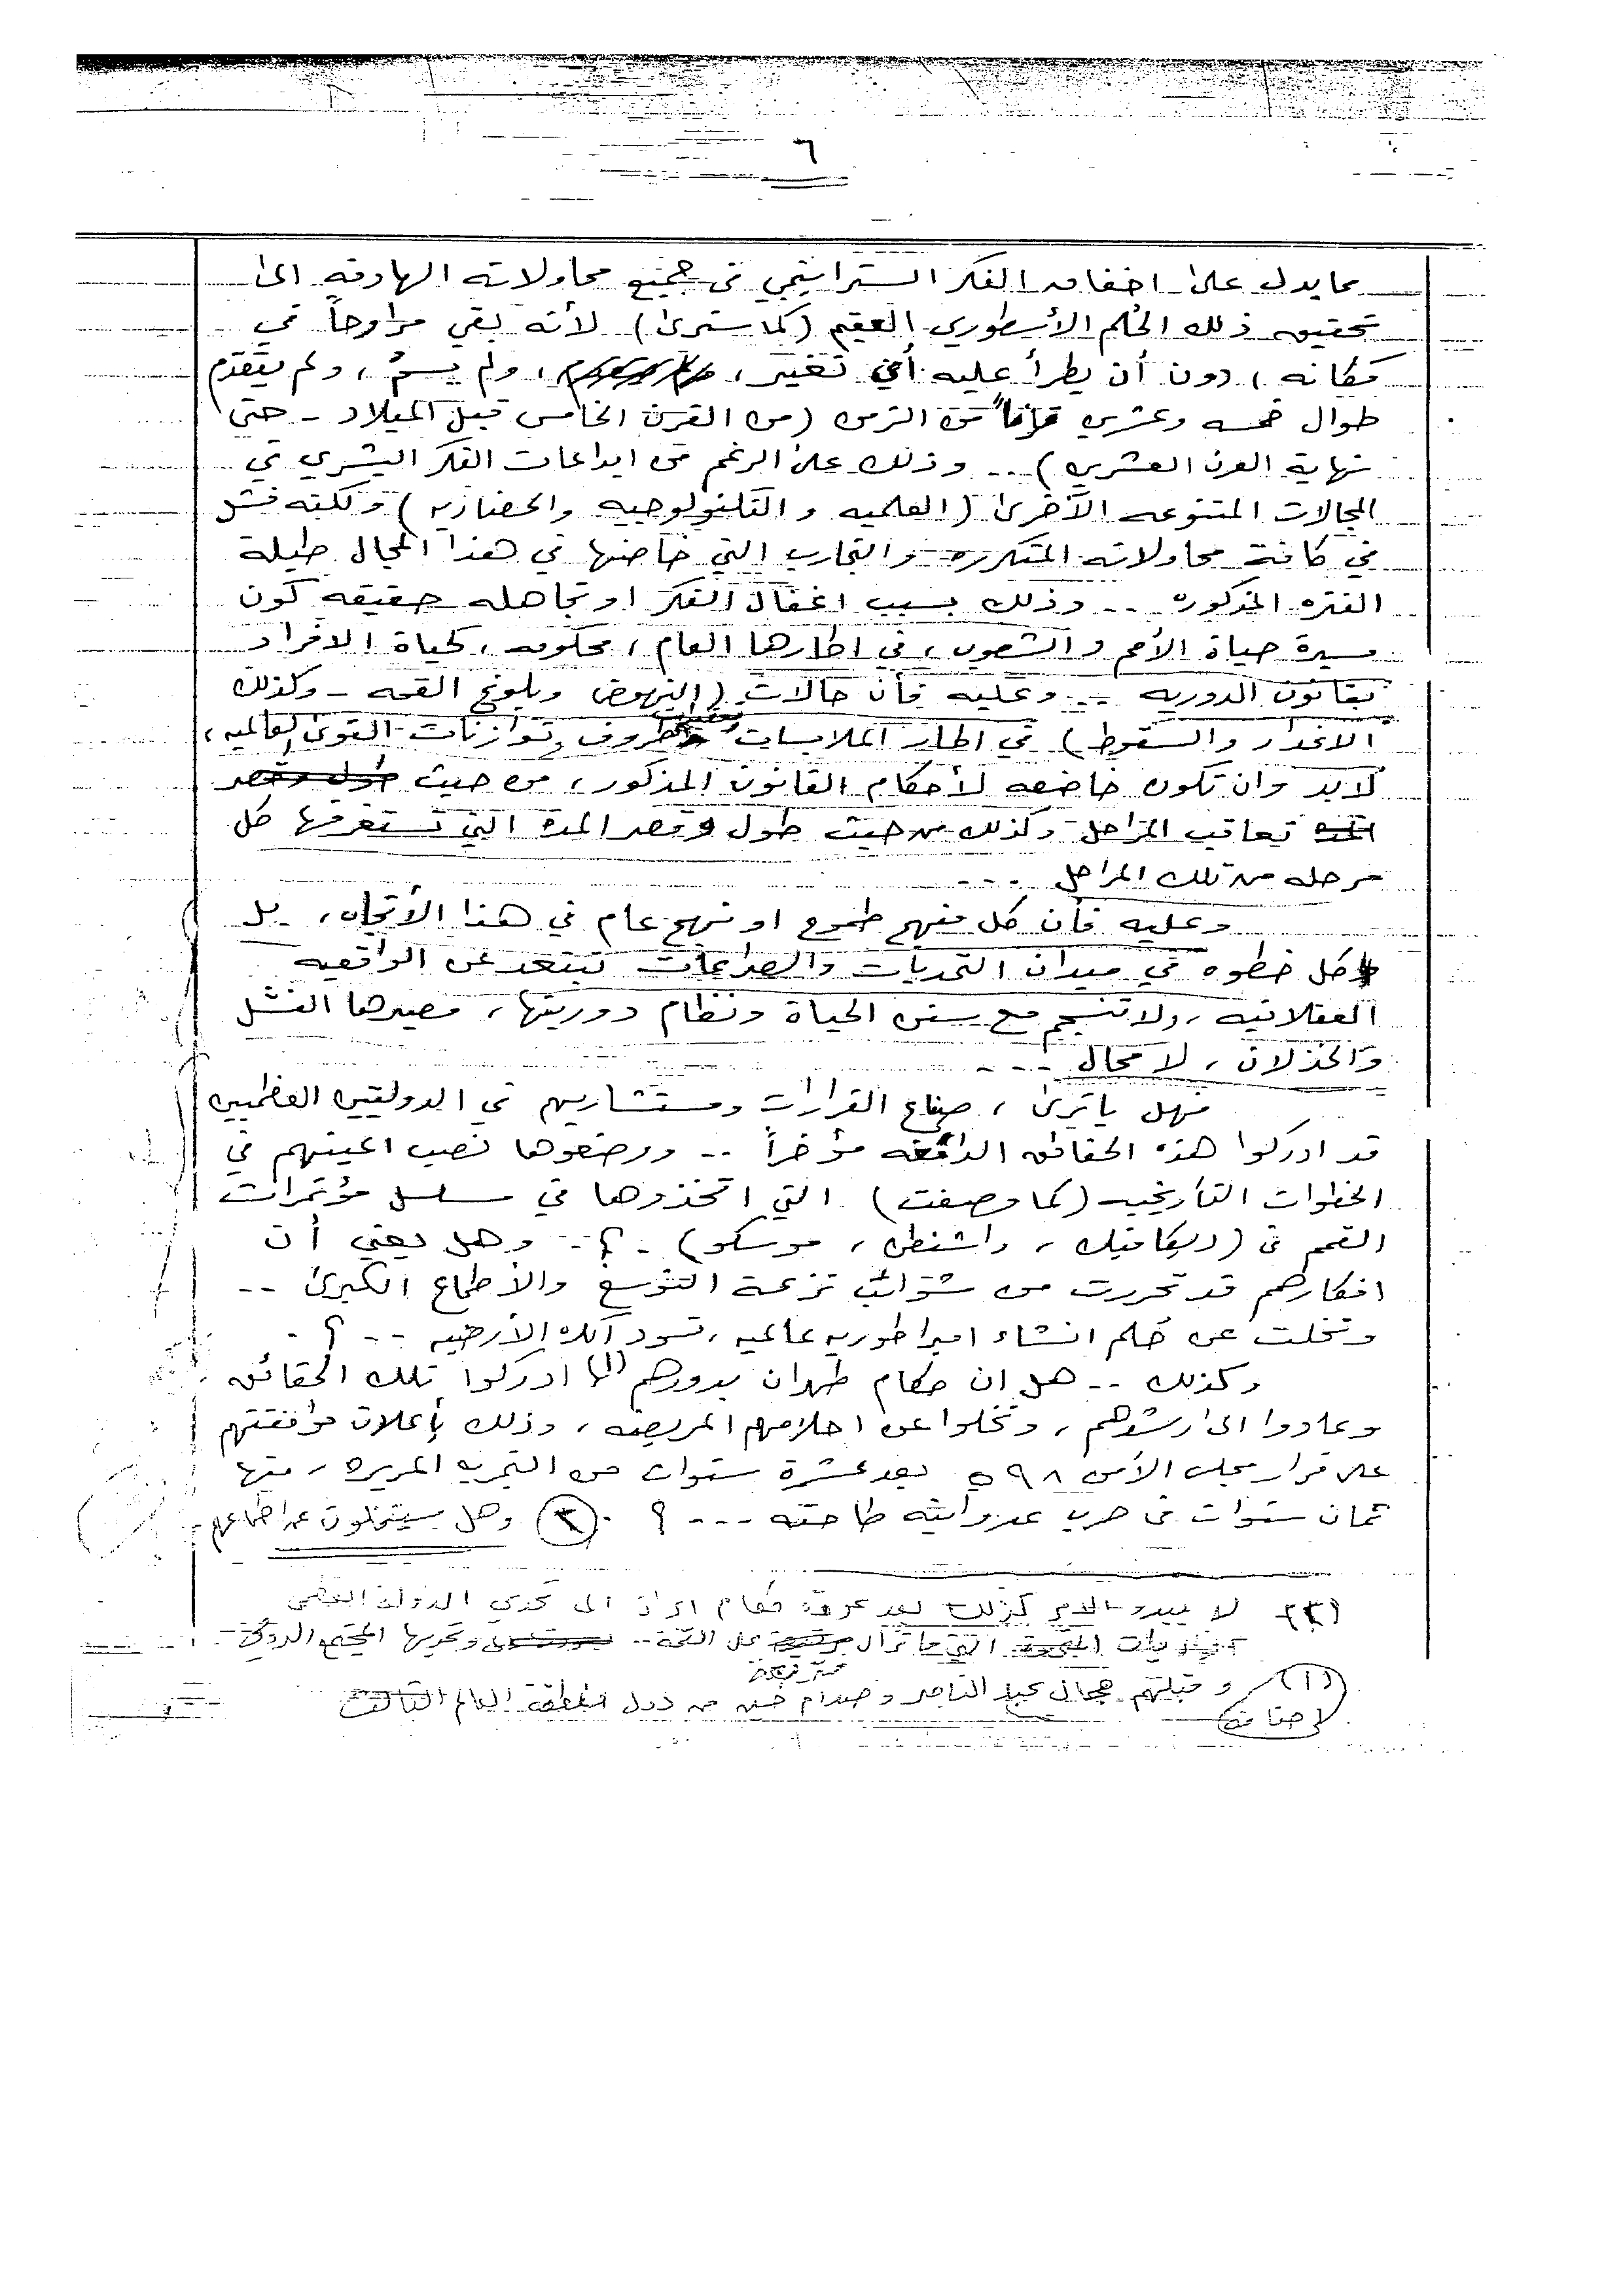 ٦
مما يدل على اخفاق الفكر الستراتيجي في جميع محاولاته الهادفة الى
تحقيق ذلك الحُلم الأسطوري العقيم (كما سنرى) لأنه بقي مراوحاً في
مكانه، دون أن يطرأ عليه أي تغير، ولم يسمُ، ولم يتقدم
طوال خمسه وعشرين قرناً من الزمن (من القرن الخامس قبل الميلاد - حتى
نهاية القرن العشرين) .. وذلك على الرغم من ابداعات الفكر البشري في
المجالات المتنوعه الآخرى (العلميه والتكنولوجيه والحضاريه) ولكنه فشل
في كافة محاولاته المتكرره والتجارب التي خاضها في هذا المجال طيلة
الفتره المذكوره .. وذلك بسبب اغفال الفكر او تجاهله حقيقه كون
مسيرة حياة الأمم والشعوب، في اطارها العام، محكومه، كحياة الافراد
بقانون الدوريه .. وعليه فأن حالات (النهوض وبلوغ القمه - وكذلك
الانحدار والسقوط) في اطار الملابسات وظروف وتوازنات القوى العالميه،
لابد وان تكون خاضعه لأحكام القانون المذكور، من حيث طول وقصر
المده تعاقب المراحل وكذلك من حيث طول وقصر المدة التي تستغرقها كل
مرحله من تلك المراحل ...
وعليه فأن كل منهج طموح او نهج عام في هذا الأتجاه، بل
كل خطوه في ميدان التحديات والصراعات تبتعد عن الواقعيه
العقلانيه، ولا تنسجم مع سنن الحياة ونظام دوريتها، مصيرها الفشل
والخذلان، لا محال ...
فهل ياترى، صناع القرارات ومستشاريهم في الدولتين العظميين
قد ادركوا هذه الحقائق الدامغه مؤخراً .. ووضعوها نصب اعينهم في
الخطوات التأريخيه (كما وصفت) التي اتخذوها في سلسل مؤتمرات
القمم في (ريكافيك، واشنطن، موسكو) .. ؟ .. وهل يعني أن
افكارهم قد تحررت من شوائب نزعة التوسع والأطماع الكبرى ..
وتخلت عن حُلم انشاء امبراطوريه عالميه، تسود الكره الأرضيه .. ؟ .
وكذلك .. هل ان حكام طهران بدورهم (١) ادركوا تلك الحقائق
وعادوا الى رشدهم، وتخلوا عن احلامهم المريضه، وذلك بأعلان موافقتهم
على قرار مجلس الأمن ٥٩٨ بعد عشرة سنوات من التجربه المريره، منها
ثمان سنوات في حرب عدوانيه طاحنه ... ؟ . (٢) وهل سيتخلون عن اطماعهم
(٢) لا يبدو الامر كذلك بعد حكام ايران الى تحدي الدولة العظمى
التي ما تزال على القمة .. وتحديها المجتمع الدولي
(١) وقبلهم جمال عبد الناصر وصدام حسين من دول منطقة العالم الثالث